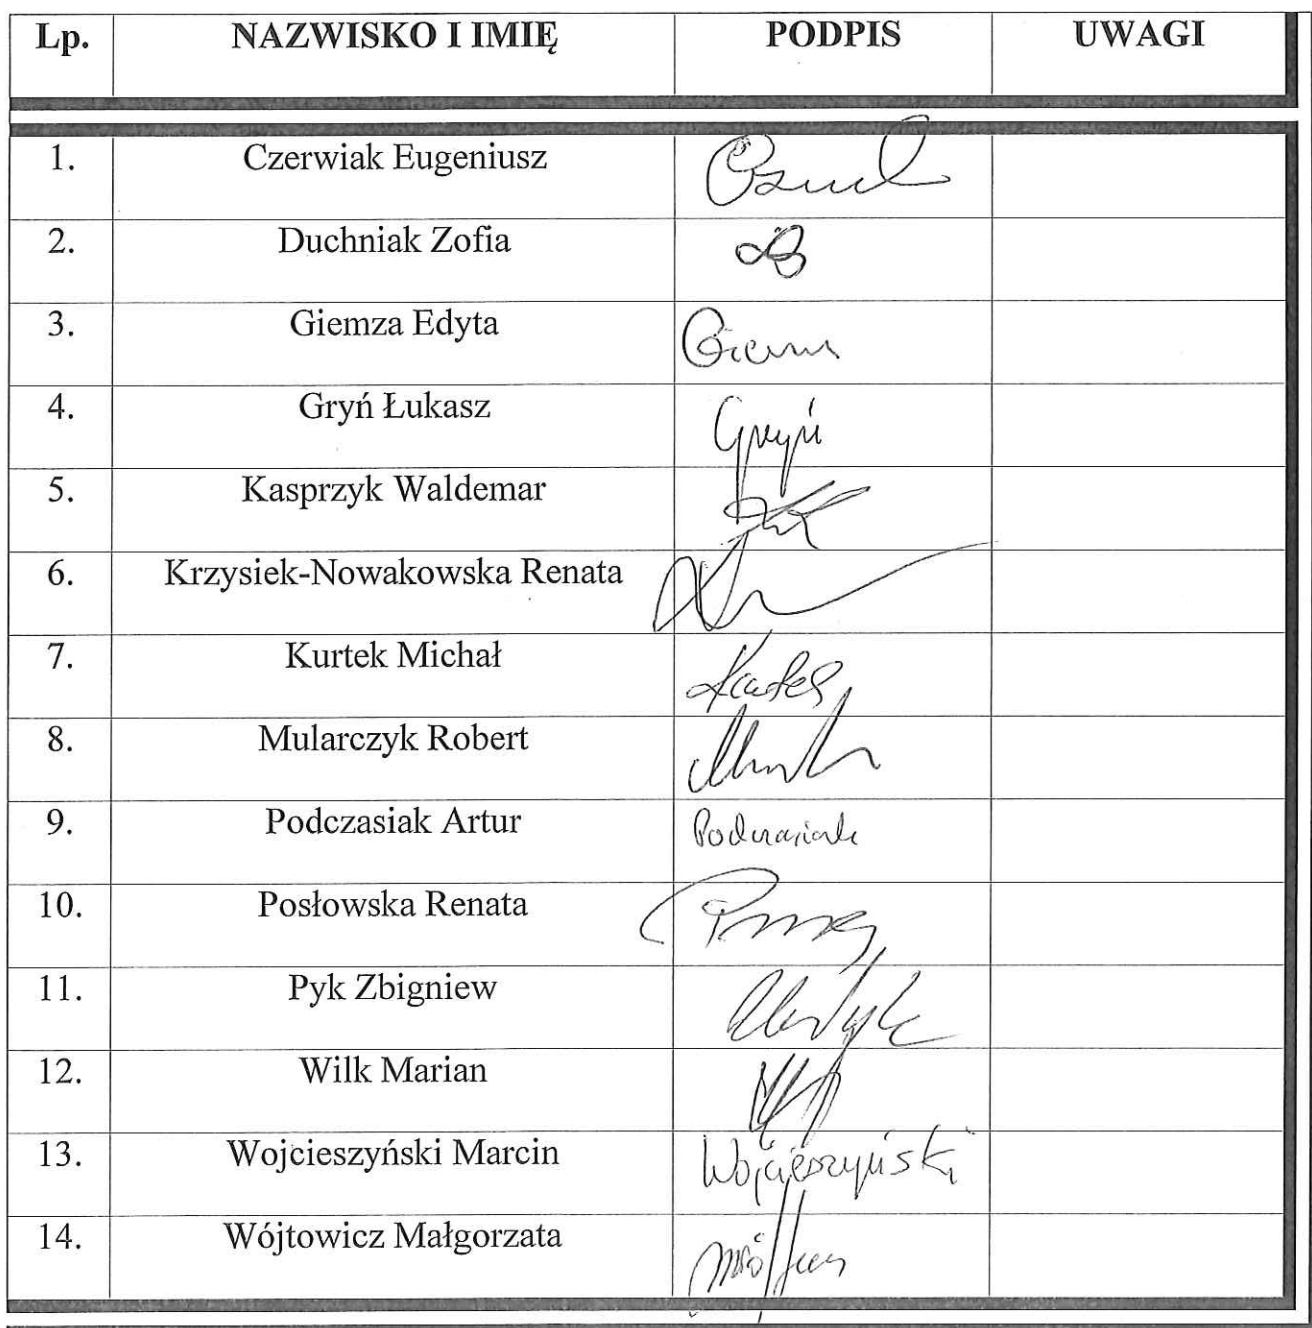 Lp. NAZWISKO I IMIĘ PODPIS UWAGI
1. Czerwiak Eugeniusz
2. Duchniak Zofia
3. Giemza Edyta
4. Gryń Łukasz Gryń
5. Kasprzyk Waldemar
6. Krzysiek-Nowakowska Renata
7. Kurtek Michał
8. Mularczyk Robert
9. Podczasiak Artur Podczasiak
10. Posłowska Renata
11. Pyk Zbigniew
12. Wilk Marian
13. Wojcieszyński Marcin Wojcieszyński
14. Wójtowicz Małgorzata